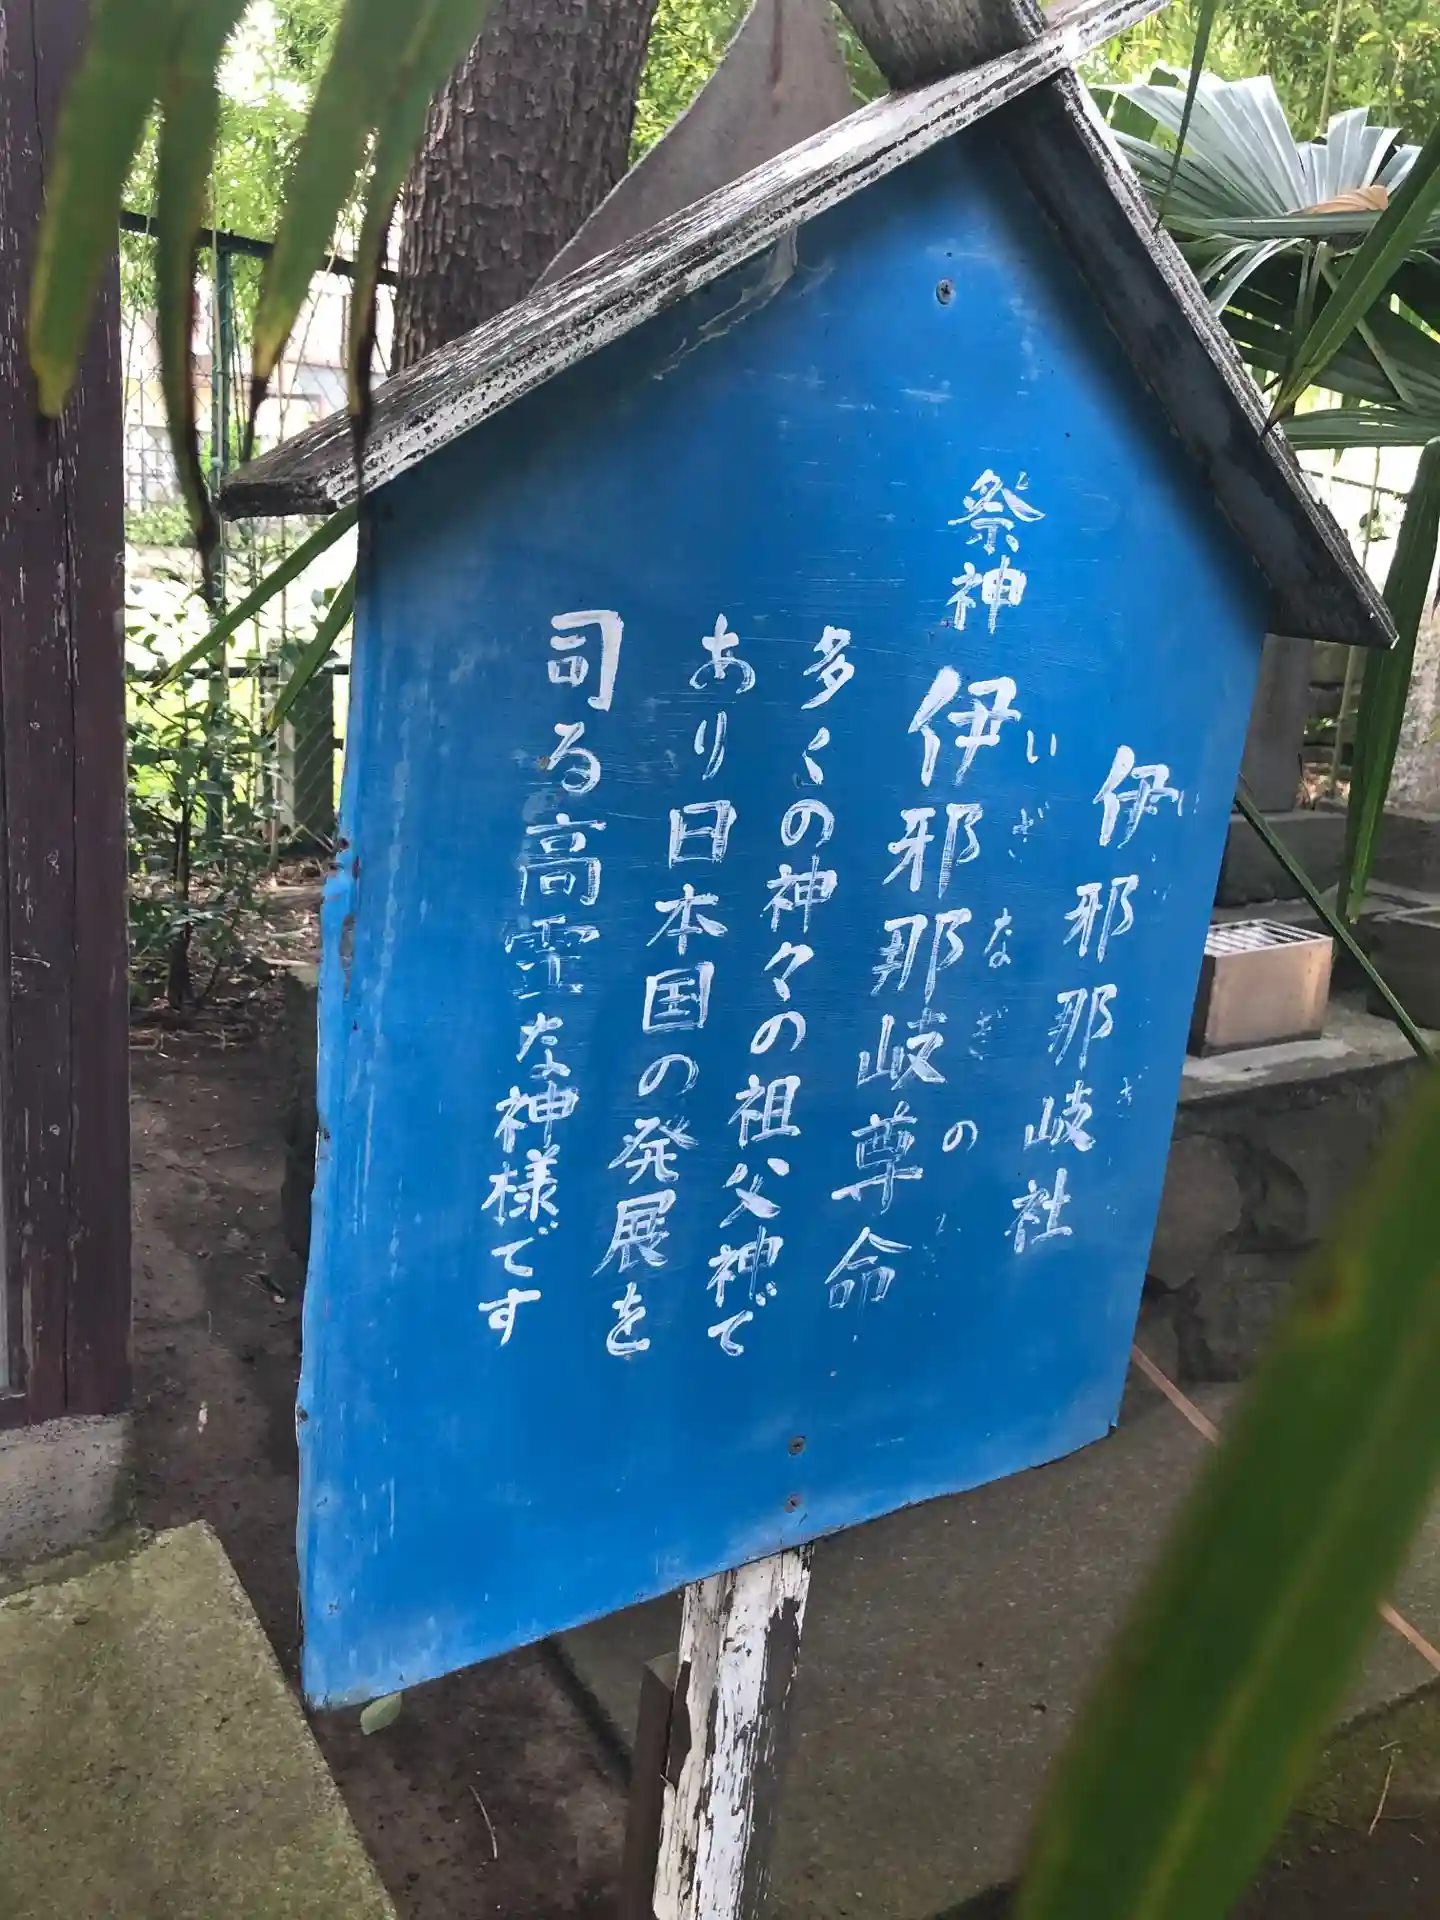 伊邪那岐社
祭神 伊邪那岐尊命
いぎなぎの
多くの神々の祖父神で
あり日本国の発展を
司る高霊な神様です